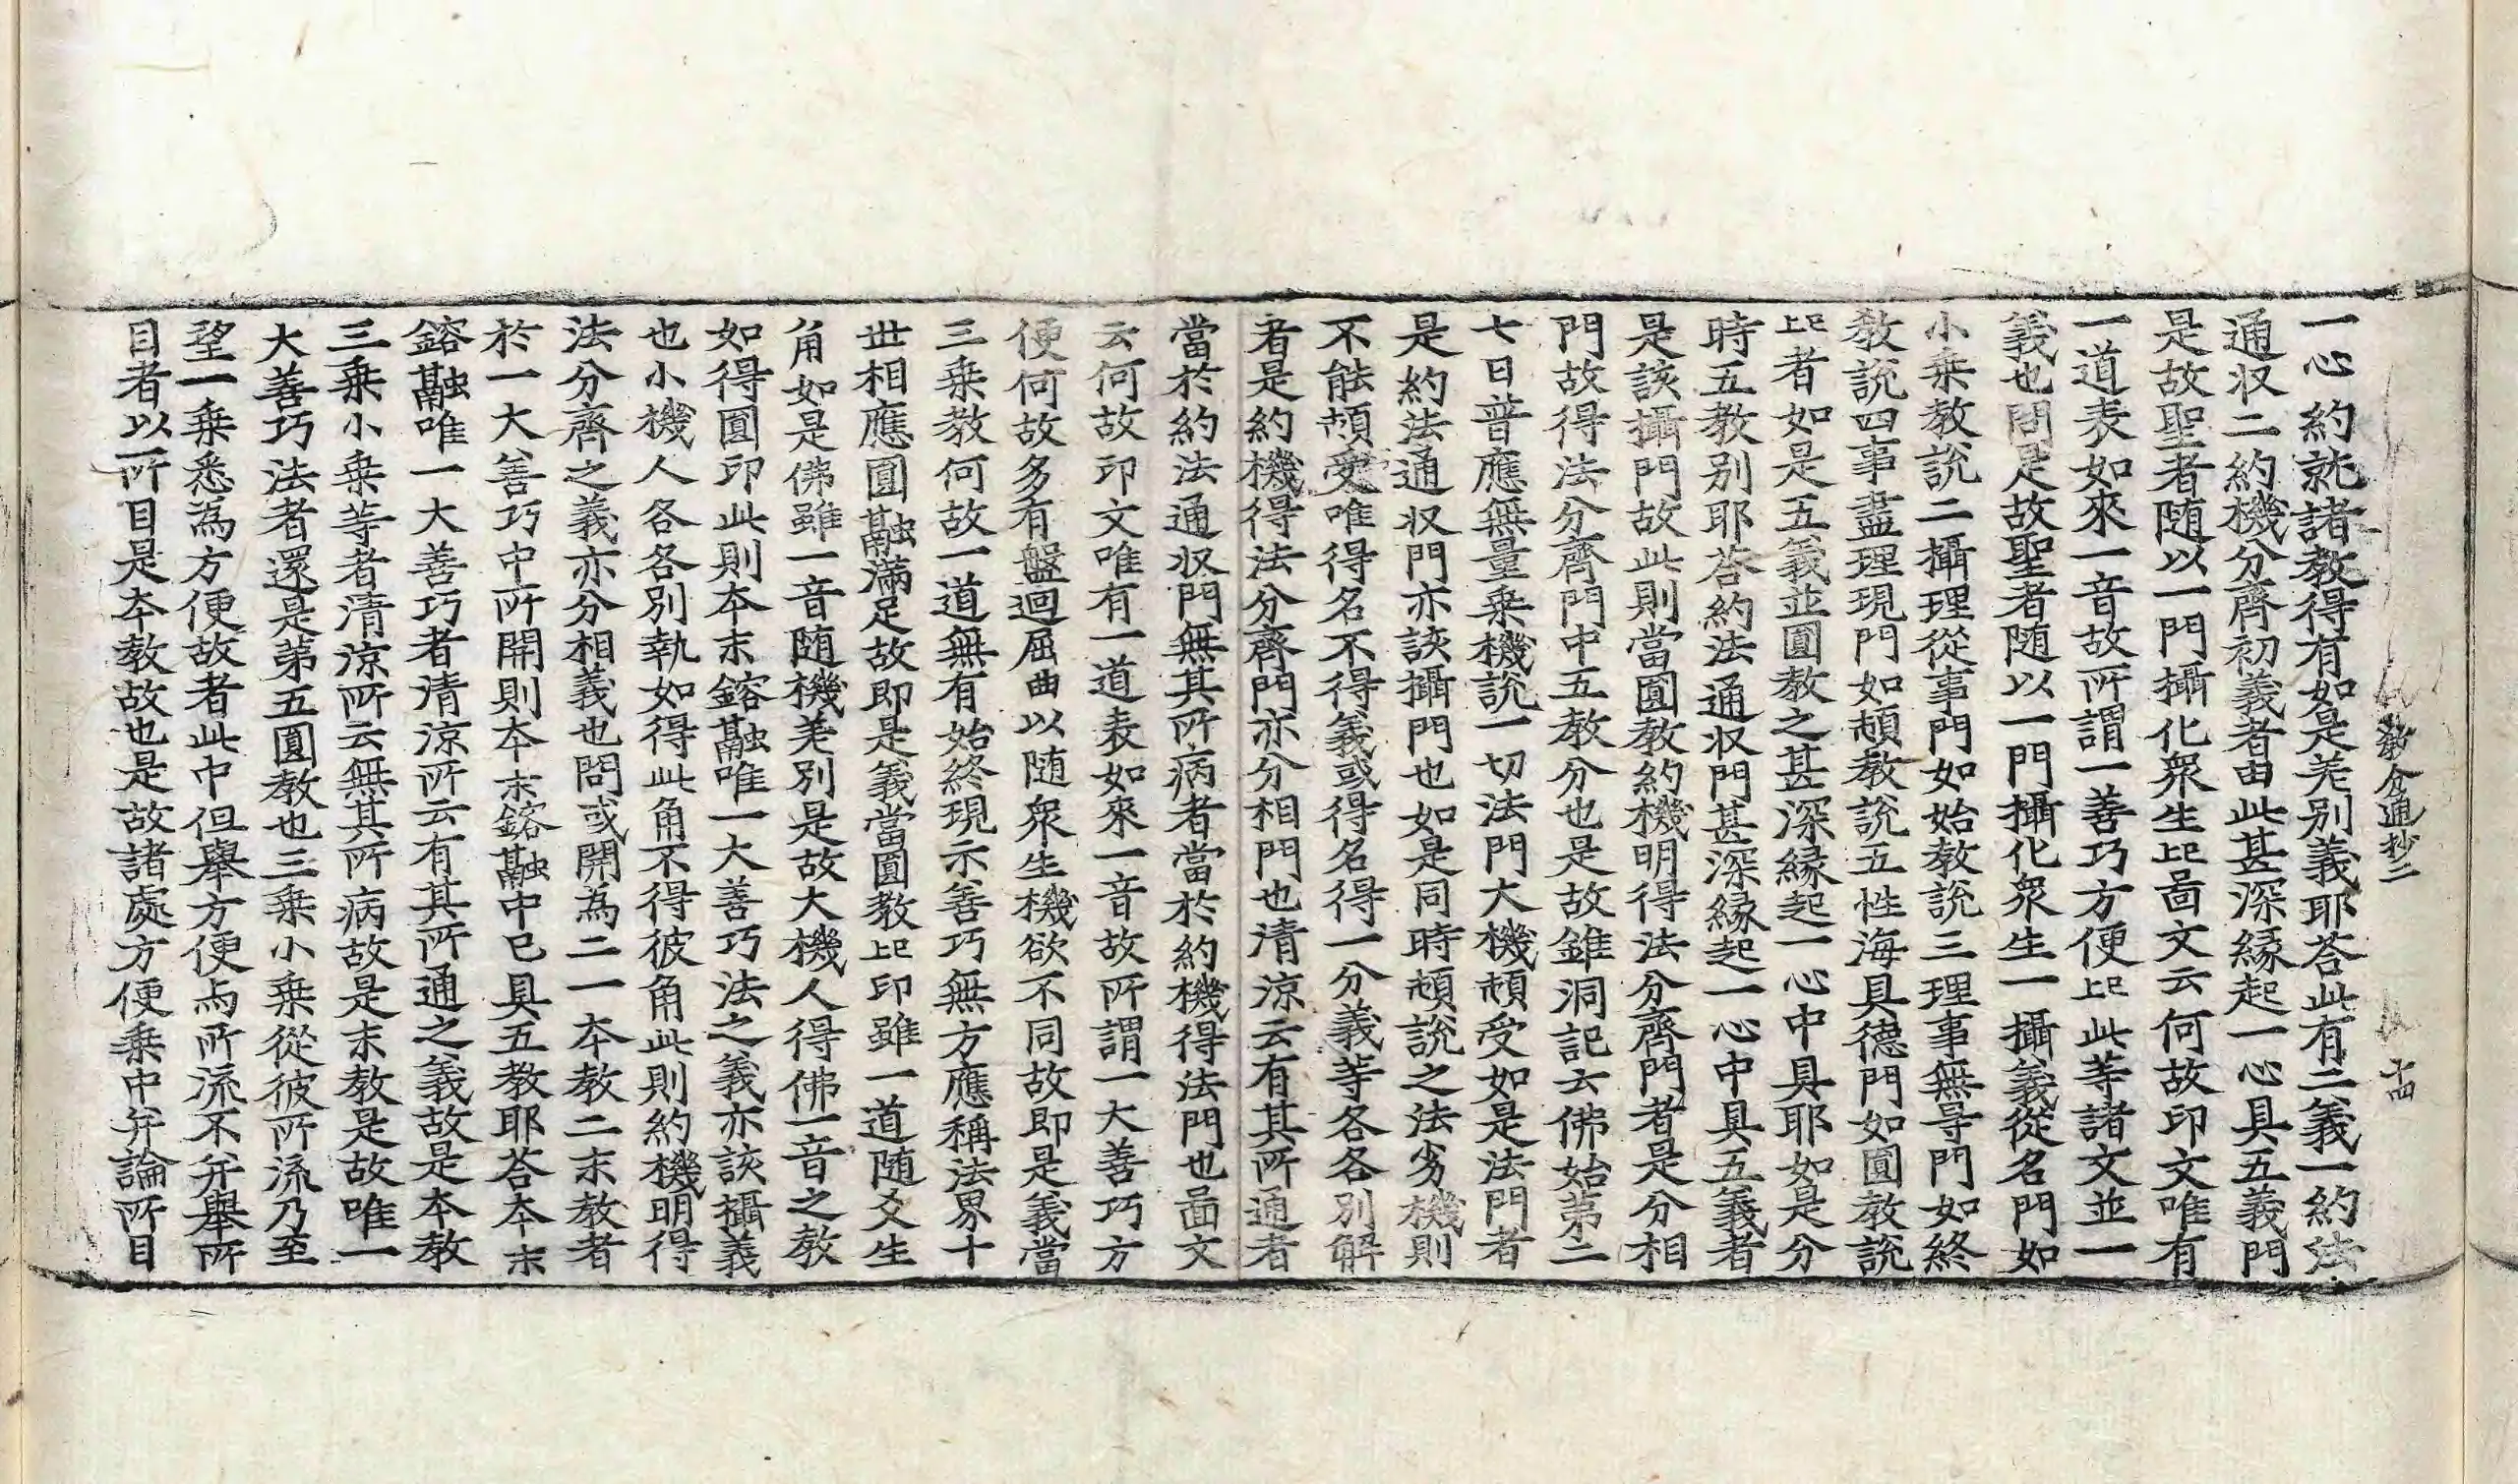 教分通抄二　十四
一心約就諸教得有如是差別義耶荅此有二義一約法
通収二約機分齊初義者由此甚深縁起一心具五義門
是故聖者随以一門攝化衆生上已啚文云何故印文唯有
一道表如來一音故所謂一善巧方便上已此等諸文並一
義也問是故聖者随以一門攝化衆生一攝義從名門如
小乗教說二攝理從事門如始教說三理事無㝵門如終
教說四事盡理現門如頓教說五性海具德門如圓教說
上已者如是五義並圓教之甚深縁起一心中具耶如是分
時五教別耶荅約法通収門甚深縁起一心中具五義者
是該攝門故此則當圓教約機明得法分齊門者是分相
門故得法分齊門中五教分也是故錐洞記云佛始苐二
七日普應無量乗機說一切法門大機頓受如是法門者
是約法通収門亦該攝門也如是同時頓說之法劣機則
不能頓受唯得名不得義或得名得一分義等各各別解
者是約機得法分齊門亦分相門也清涼云有其所通者
當於約法通収門無其所病者當於約機得法門也啚文
云何故印文唯有一道表如來一音故所謂一大善巧方
便何故多有盤迴屈曲以随衆生機欲不同故即是義當
三乗教何故一道無有始終現示善巧無方應稱法界十
世相應圓融滿足故即是義當圓教上已印雖一道随文生
角如是佛雖一音随機差別是故大機人得佛一音之教
如得圓印此則本末鎔融唯一大善巧法之義亦該攝義
也小機人各各別執如得此角不得彼角此則約機明得
法分齊之義亦分相義也問或開為二一本教二末教者
於一大善巧中所開則本末鎔融中已具五教耶荅本末
鎔融唯一大善巧者清涼所云有其所通之義故是本教
三乗小乗等者清涼所云無其所病故是末教是故唯一
大善巧法者還是苐五圓教也三乗小乗從彼所流乃至
望一乗悉為方便故者此中但舉方便与所流不并舉所
目者以所目是本教故也是故諸處方便乗中并論所目